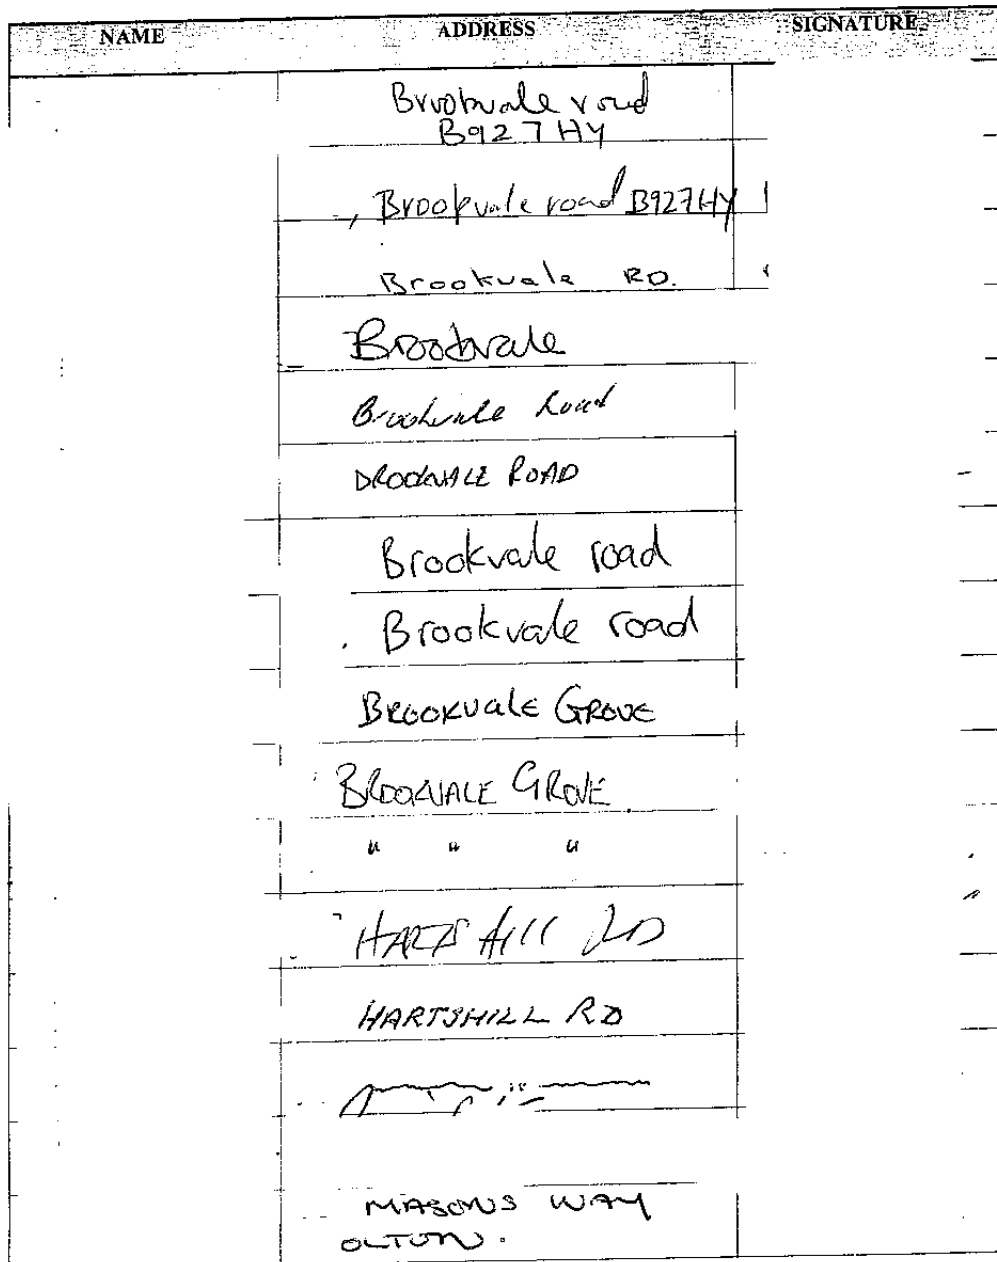 NAME ADDRESS SIGNATURE
Brookvale road
B92 7HY
, Brookvale road B927HY
Brookvale RD.
Brookvale
Brookvale Road
BROOKVALE ROAD
Brookvale road
Brookvale road
BROOKVALE GROVE
BROOKVALE GROVE
" " "
HARTS HILL RD
HARTSHILL RD
MASONS WAY
OLTON.